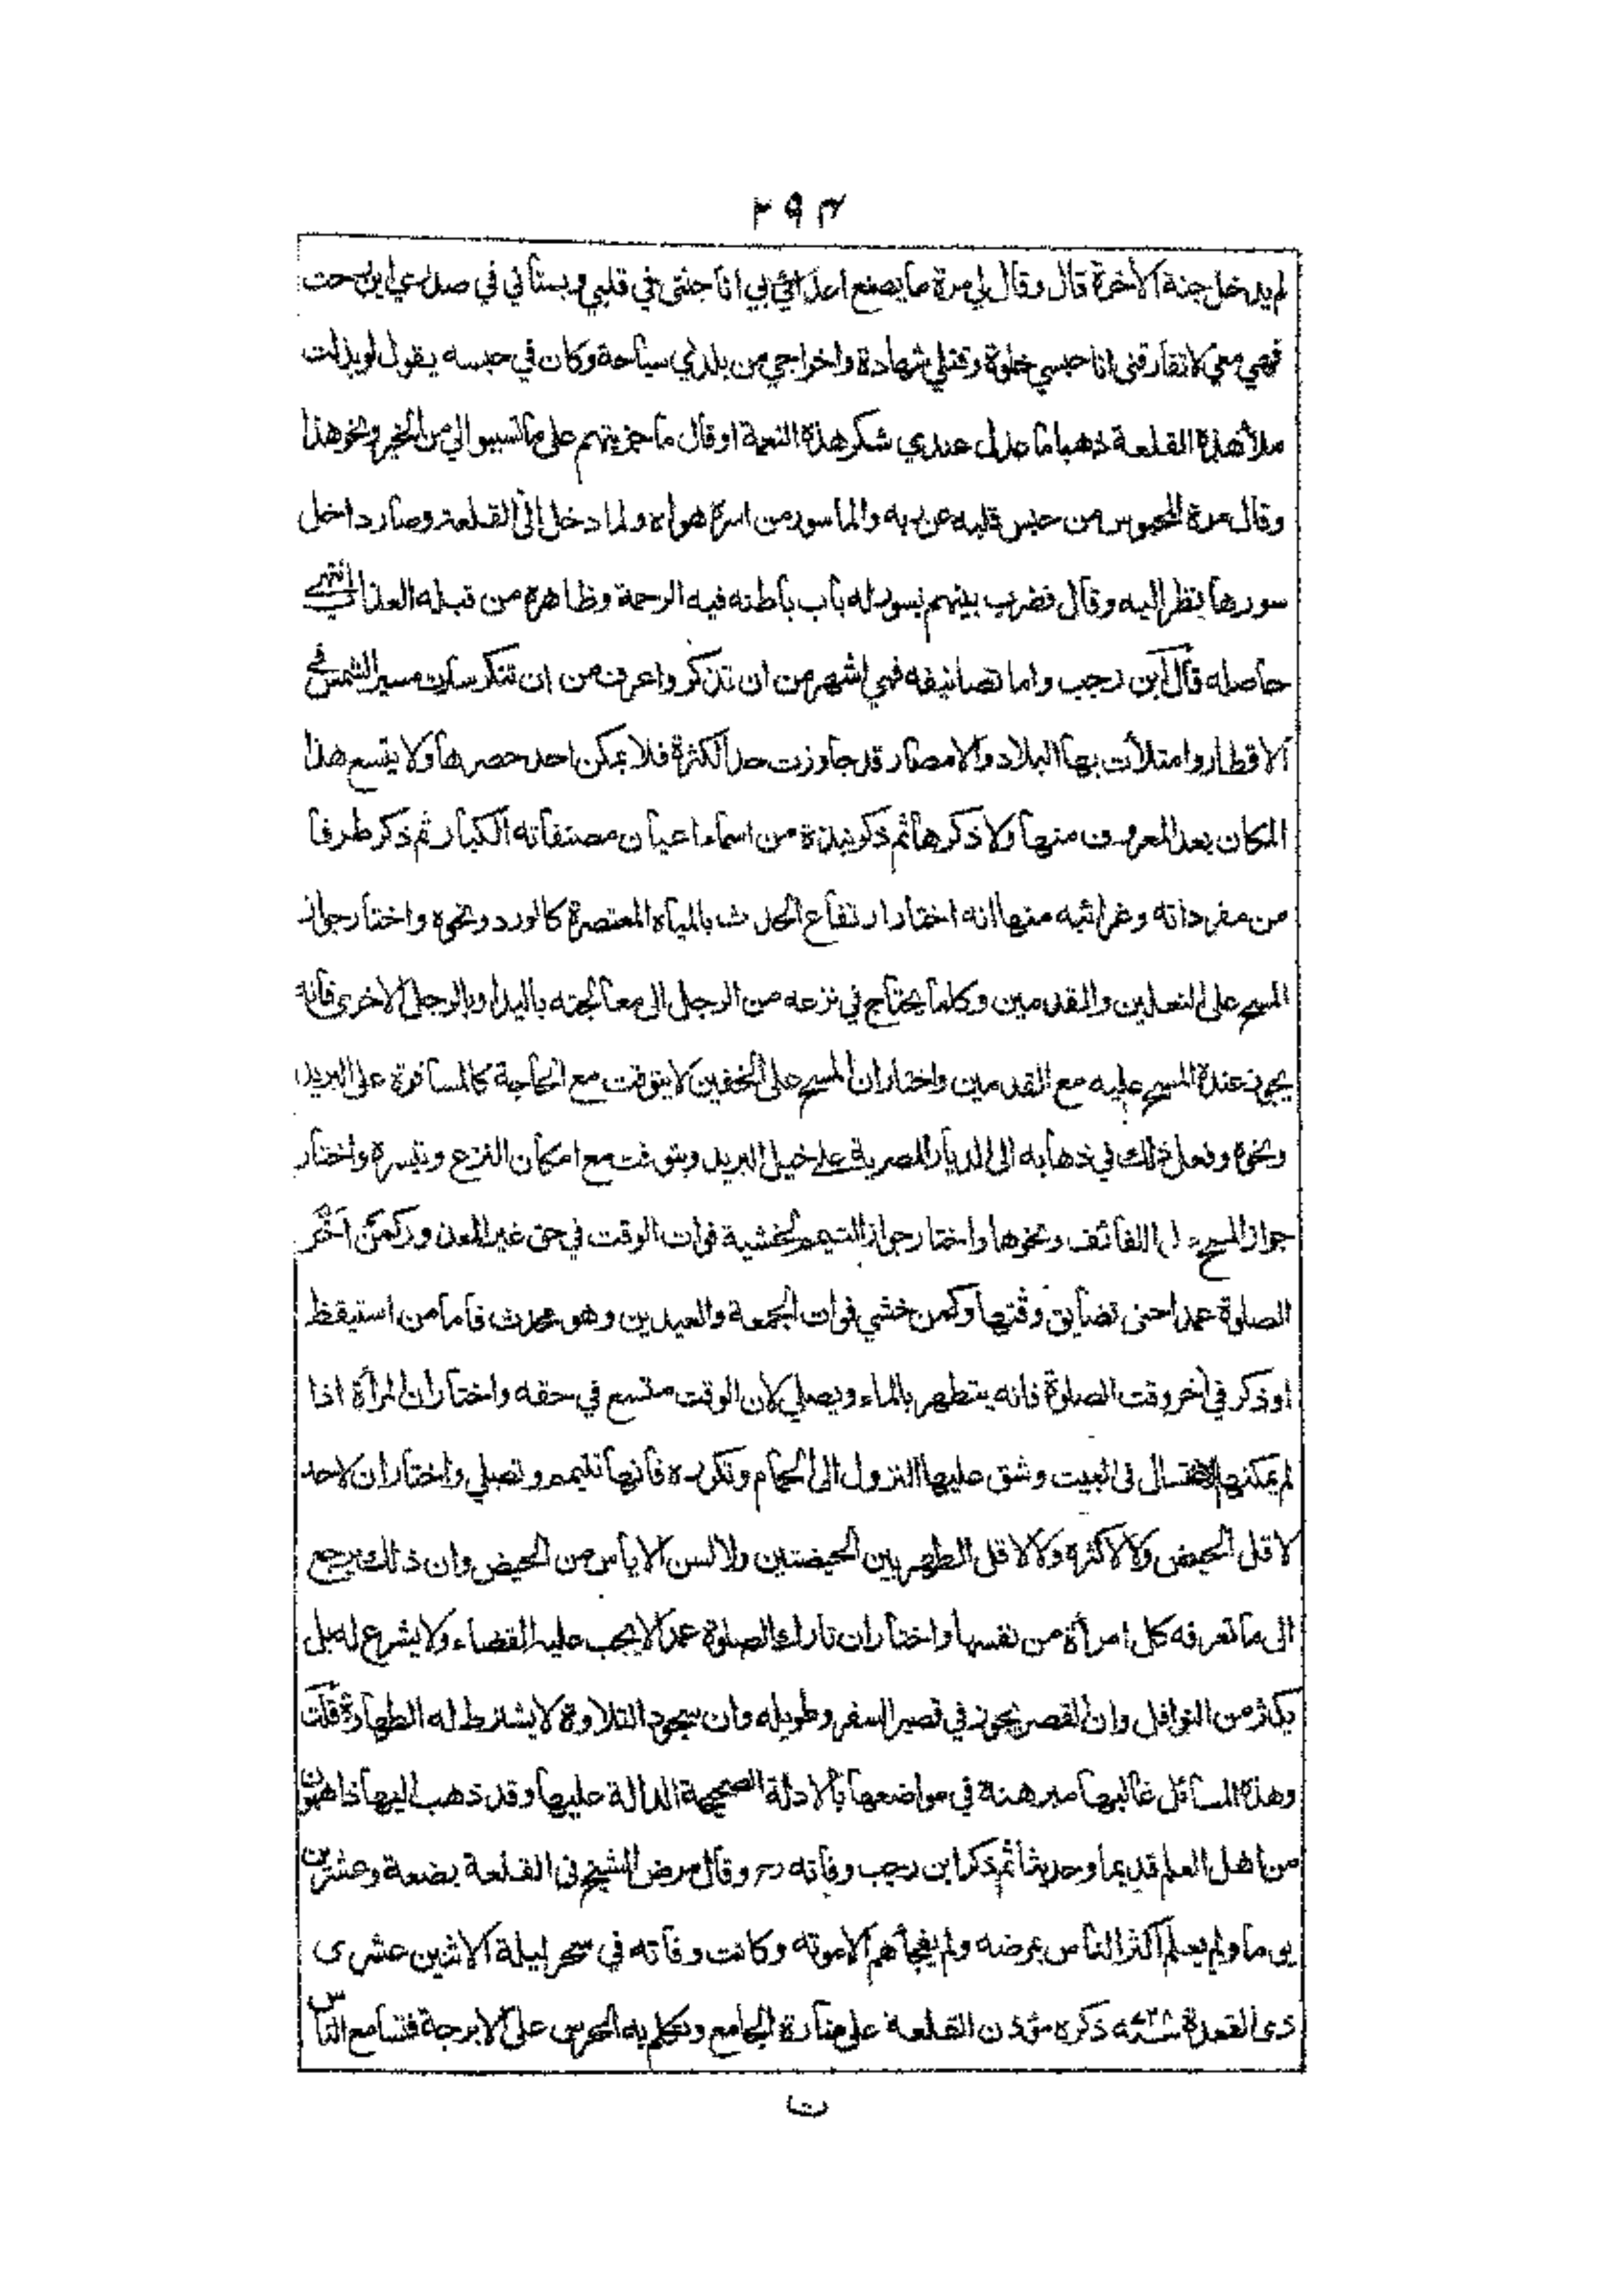 ٢٩٣
لم يدخل جنة الآخرة قال وقال لي مرة ما يصنع اعدائي بي انا جنتي في قلبي وبستاني في صدري اين رحت
فهي معي لا تفارقني انا حبسي خلوة وقتلي شهادة واخراجي من بلدي سياحة وكان في حبسه يقول لو بذلت
ملأ هذه القلعة ذهبا ما عدل عندي شكر هذه النعمة او قال ما جزيتهم على ما تسببوا الي من الخير ونحو هذا
وقال مرة المحبوس من حبس قلبه عن ربه والماسور من اسره هواه ولما دخل الى القلعة وصار داخل
سورها نظر اليه وقال فضرب بينهم بسور له باب باطنه فيه الرحمة وظاهره من قبله العذاب انتهى
حاصله قال ابن رجب واما تصانيفه فهي اشهر من ان تذكر واعرف من ان تنكر سارت مسير الشمس في
الاقطار وامتلأت بها البلاد والامصار قد جاوزت حد الكثرة فلا يمكن احد حصرها ولا يتسع هذا
المكان بعد المعروف منها ولا ذكرها ثم ذكر نبذة من اسماء اعيان مصنفاته الكبار ثم ذكر طرفا
من مفرداته وغرائبه منها انه اختار ارتفاع الحدث بالمياه المعتصرة كالورد ونحوه واختار جواز
المسح على النعلين والقدمين وكلما يحتاج في نزعه من الرجل الى معالجته باليد او بالرجل الاخرى فانه
يجوز عنده المسح عليه مع القدمين واختار ان المسح على الخفين لا يتوقت مع الحاجة كالمسافرة على البريد
ونحوه وفعل ذلك في ذهابه الى الديار المصرية على خيل البريد ويتوقت مع امكان النزع وتيسره واختار
جواز المسح على اللفائف ونحوها واختار جواز التيمم لخشية فوات الوقت في حق غير المعذور كمن اخر
الصلوة عمدا حتى تضايق وقتها وكمن خشي فوات الجمعة والعيدين وهو محدث فاما من استيقظ
او ذكر في اخر وقت الصلوة فانه يتطهر بالماء ويصلي لان الوقت متسع في حقه واختار ان المرأة اذا
لم يمكنها الاغتسال في البيت وشق عليها النزول الى الحمام وتكرره فانها تتيمم وتصلي واختار ان لا حد
لاقل الحيض ولا لاكثره ولا لاقل الطهر بين الحيضتين ولا لسن الاياس من الحيض وان ذلك يرجع
الى ما تعرفه كل امرأة من نفسها واختار ان تارك الصلوة عمدا لا يجب عليه القضاء ولا يشرع له بل
يكثر من النوافل وان القصر يجوز في قصير السفر وطويله وان سجود التلاوة لا يشترط له الطهارة قلت
وهذه المسائل غالبها مبرهنة في مواضعها بالادلة الصحيحة الدالة عليها وقد ذهب اليها ذاهبون
من اهل العلم قديما وحديثا ثم ذكر ابن رجب وفاته رح وقال مرض الشيخ في القلعة بضعة وعشرين
يوما ولم يعلم اكثر الناس بمرضه ولم يفجأهم الا موته وكانت وفاته في سحر ليلة الاثنين عشرى
ذى القعدة سنة ٧٢٨ه ذكره مؤذن القلعة على منارة الجامع وتكلم به الحرس على الابرجة فتسامع الناس
ت